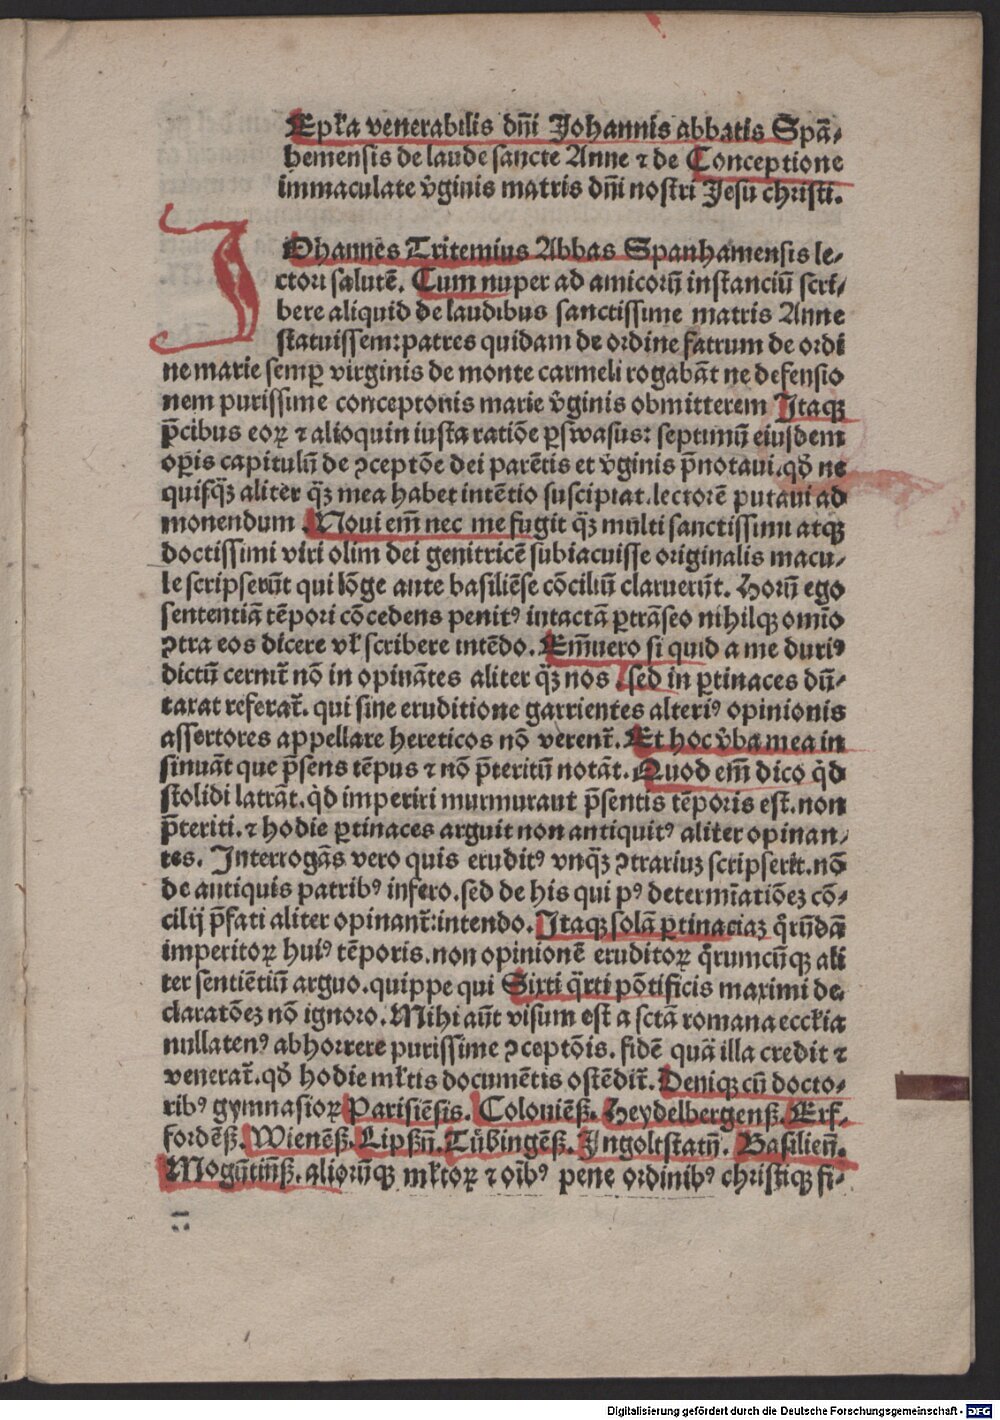 Epl̄a venerabilis dn̄i Johannis abbatis Spā-
hemensis de laude sancte Anne ⁊ de Conceptione
immaculate v̄ginis matris dn̄i nostri Jesu christi.
JOhannes Tritemius Abbas Spanhamensis le-
ctori salutē. Cum nuper ad amicorū instanciū scri-
bere aliquid de laudibus sanctissime matris Anne
statuissem: patres quidam de ordine fatrum de ordi
ne marie semꝑ virginis de monte carmeli rogabāt ne defensio
nem purissime conceptonis marie v̄ginis obmitterem Itaqꝫ
p̄cibus eoꝝ ⁊ alioquin iusta ratiōe ꝑswasus: septimū eiusdem
oꝑis capitulū de ꝯceptōe dei parētis et v̄ginis p̄notaui. qd̄ ne
quisqꝫ̄ aliter qꝫ̄ mea habet intētio suscipiat. lectorē putaui ad
monendum. Noui em̄ nec me fugit qꝫ̄ multi sanctissimi atqꝫ
doctissimi viri olim dei genitricē subiacuisse originalis macu-
le scripserūt qui lōge ante basiliēse cōciliū claruerūt. Horū ego
sententiā tēpori cōcedens penitꝰ intactā ꝑtrāseo nihilqꝫ omīo
ꝯtra eos dicere vl̄ scribere intēdo. Em̄uero si quid a me duriꝰ
dictū cernit̄ nō in opināntes aliter qꝫ̄ nos. sed in ꝑtinaces dū-
taxat referat̄. qui sine eruditione garrientes alteriꝰ opinionis
assertores appellare hereticos nō verent̄. Et hoc v̄ba mea in
sinuāt que p̄sens tēpus ⁊ nō p̄teritū notāt. Quod em̄ dico qd̄
stolidi latrāt. qd̄ imperiti murmurant p̄sentis tēporis est. non
p̄teriti. ⁊ hodie ꝑtinaces arguit non antiquitꝰ aliter opinan-
tes. Interrogās vero quis eruditꝰ vnqꝫ̄ ꝯtrariuꝫ scripserit. nō
de antiquis patribꝰ infero. sed de his qui pꝰ determīatiōeꝫ cō-
cilij p̄fati aliter opinant̄: intendo. Itaqꝫ solā ꝑtinaciaꝫ qͦrūdā
imperitoꝝ huiꝰ tēporis. non opinionē eruditoꝝ qͦrumcūqꝫ ali
ter sentiētiū arguo. quippe qui Sixti qͣrti pōtificis maximi de
claratōeꝫ nō ignoro. Mihi aūt visum est a sctā romana eccl̄ia
nullatenꝰ abhorrere purissime ꝯceptōis. fidē quā illa credit ⁊
venerat̄. qd̄ hodie ml̄tis documētis ostēdit̄. Deniqꝫ cū docto-
ribꝰ gymnasioꝝ Parisiēsis. Coloniēß. Heydelbergenß. Erf-
fordēß. Wienēß. Lipßn̄. Tübingēß. Ingolstatn̄. Basilien̄.
Mogūtinß. aliorūqꝫ ml̄toꝝ ⁊ oībꝰ pene ordinibꝰ christiqꝫ fi-